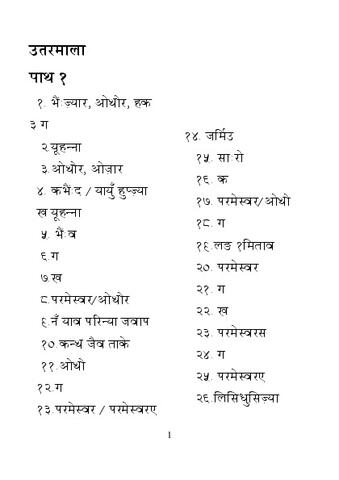 उतरमाला
पाथ १
१. भैंःज्यार, ओथोर, हक
३ ग
२.यूहन्ना
३.ओथोर, ओज़ार
४. कभैंःद / यायुँ हुप्ज़्या
ख यूहन्ना
५. भैंःव
६.ग
७.ख
८.परमेस्वर/ओथौर
९.नँ याव परिन्या जवाप
१०.कन्ध जैव ताके
११.ओथो
१२.ग
१३.परमेस्वर / परमेस्वरए
१४. जर्मिउ
१५. साःरो
१६. क
१७. परमेस्वर/ओथो
१८. ग
१९.लङ १मिताव
२०. परमेस्वर
२१. ग
२२. ख
२३. परमेस्वरस
२४. ग
२५. परमेस्वरए
२६.लिसिधुसिज़्या
1